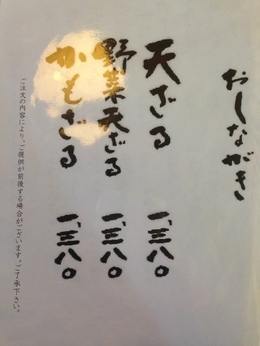 おしながき
天ざる 一、三八〇
野菜天ざる 一、三八〇
かもざる 一、三八〇
ご注文の内容により、ご提供が前後する場合がございます。ご了承下さい。